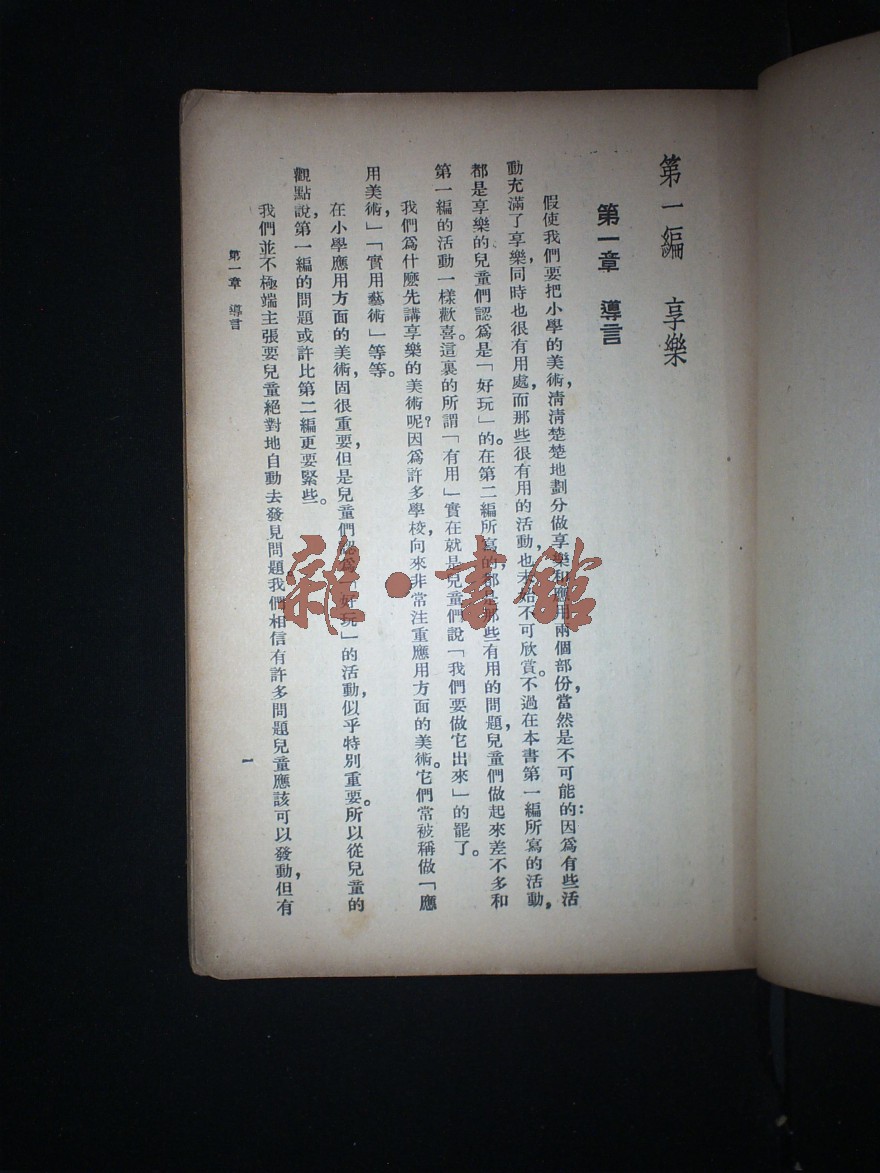 第一編　享樂
第一章　導言
假使我們要把小學的美術，清清楚楚地劃分做享樂和應用兩個部份，當然是不可能的：因爲有些活
動充滿了享樂，同時也很有用處，而那些很有用的活動，也未始不可欣賞。不過在本書第一編所寫的活動，
都是享樂的兒童們認爲是「好玩」的。在第二編所寫的，都是那些有用的問題，兒童們做起來差不多和
第一編的活動一樣歡喜。這裏的所謂「有用」實在就是兒童們說「我們要做它出來」的罷了。
我們爲什麼先講享樂的美術呢？因爲許多學校，向來非常注重應用方面的美術。它們常被稱做「應
用美術，」「實用藝術」等等。
在小學應用方面的美術，固很重要，但是兒童們認爲「好玩」的活動，似乎特別重要。所以從兒童的
觀點說，第一編的問題或許比第二編更要緊些。
我們並不極端主張要兒童絕對地自動去發見問題。我們相信有許多問題兒童應該可以發動，但有
第一章　導言
一
雜·書館